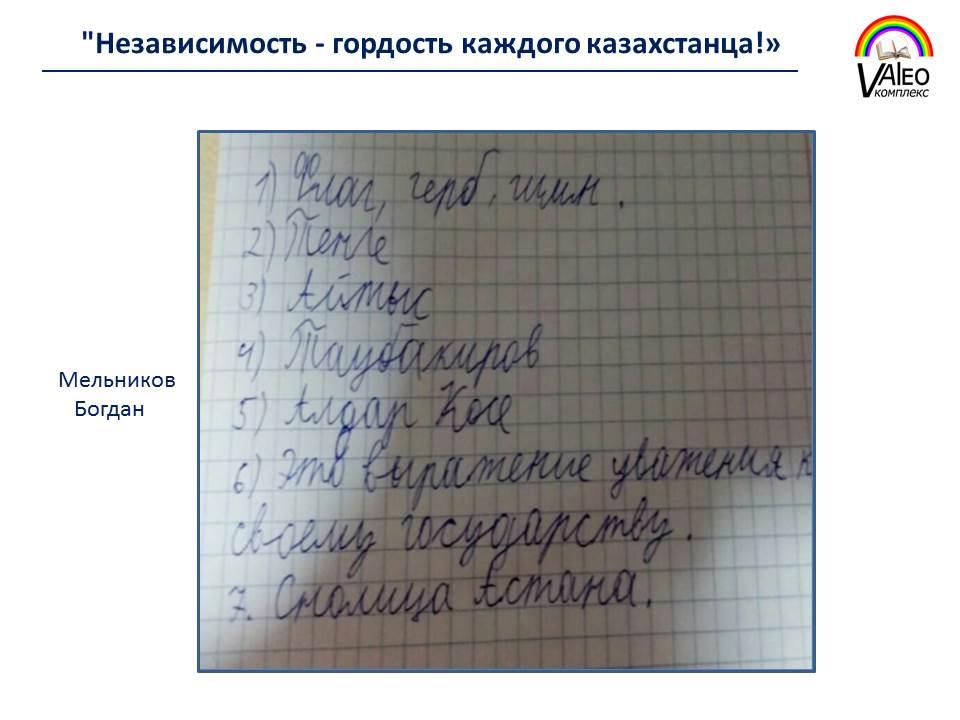 "Независимость - гордость каждого казахстанца!»
VAleo
комплекс
1) Флаг, герб, гимн.
2) Тенге
3) Айтыс
4) Таубакиров
5) Алдар Косе
6) Это выражение уважения к
своему государству.
7. Столица Астана.
Мельников
Богдан